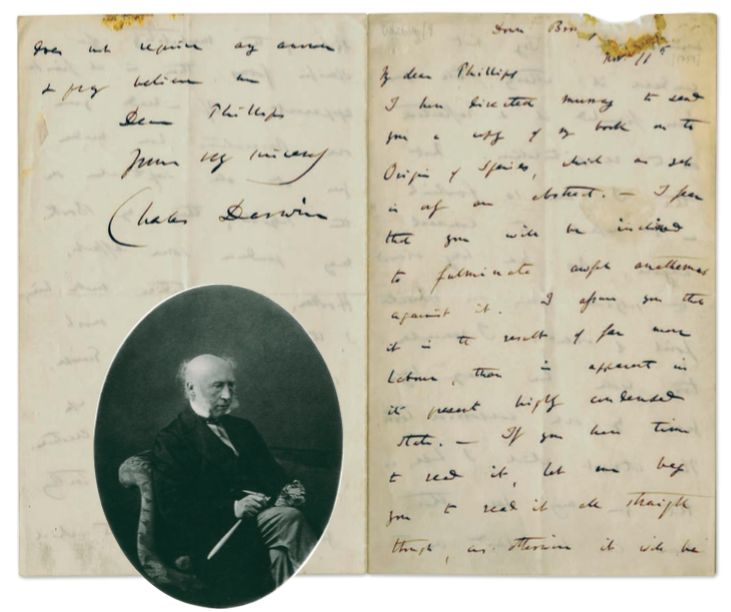 does not require any answer
& pray believe me
Dear Phillips
Yours very sincerely
Charles Darwin
Down
Nov. 11th
My dear Phillips
I have directed Murray to send
you a copy of my book on the
Origin of Species, which as yet
is only an abstract. — I fear
that you will be inclined
to fulminate awful anathemas
against it. I assure you that
it is the result of far more
labour, than is apparent in
its present highly condensed
state. — If you have time
to read it, let me beg
you to read it all straight
through, as otherwise it will be